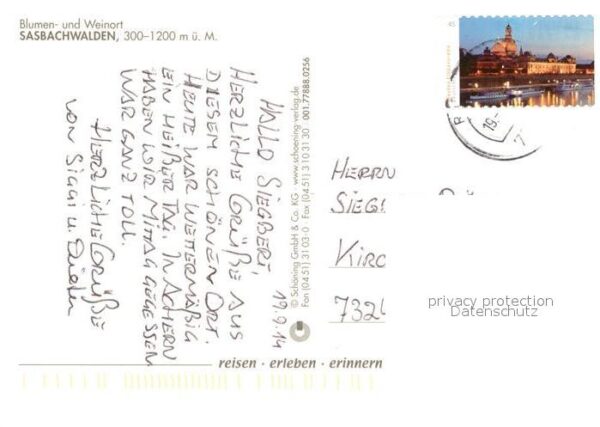 Blumen- und Weinort
SASBACHWALDEN, 300–1200 m ü. M.
19.9.14
HALLO SIEGBERT,
HERZLICHE GRÜßE AUS
DIESEM SCHÖNEN ORT.
HEUTE WAR WETTERMÄßIG
EIN HEIßER TAG. IN ACHERN
HABEN WIR MITTAG GEGESSEN
WAR GANZ TOLL.
HERZLICHE GRÜßE
VON SIGGI U.
© Schöning GmbH & Co. KG · www.schoening-verlag.de
Fon (04 51) 31 03-0 · Fax (04 51) 3 10 31 30 · 001.77888.0256
HERRN
SIEG
KIRC
732
privacy protection
Datenschutz
reisen · erleben · erinnern
19.